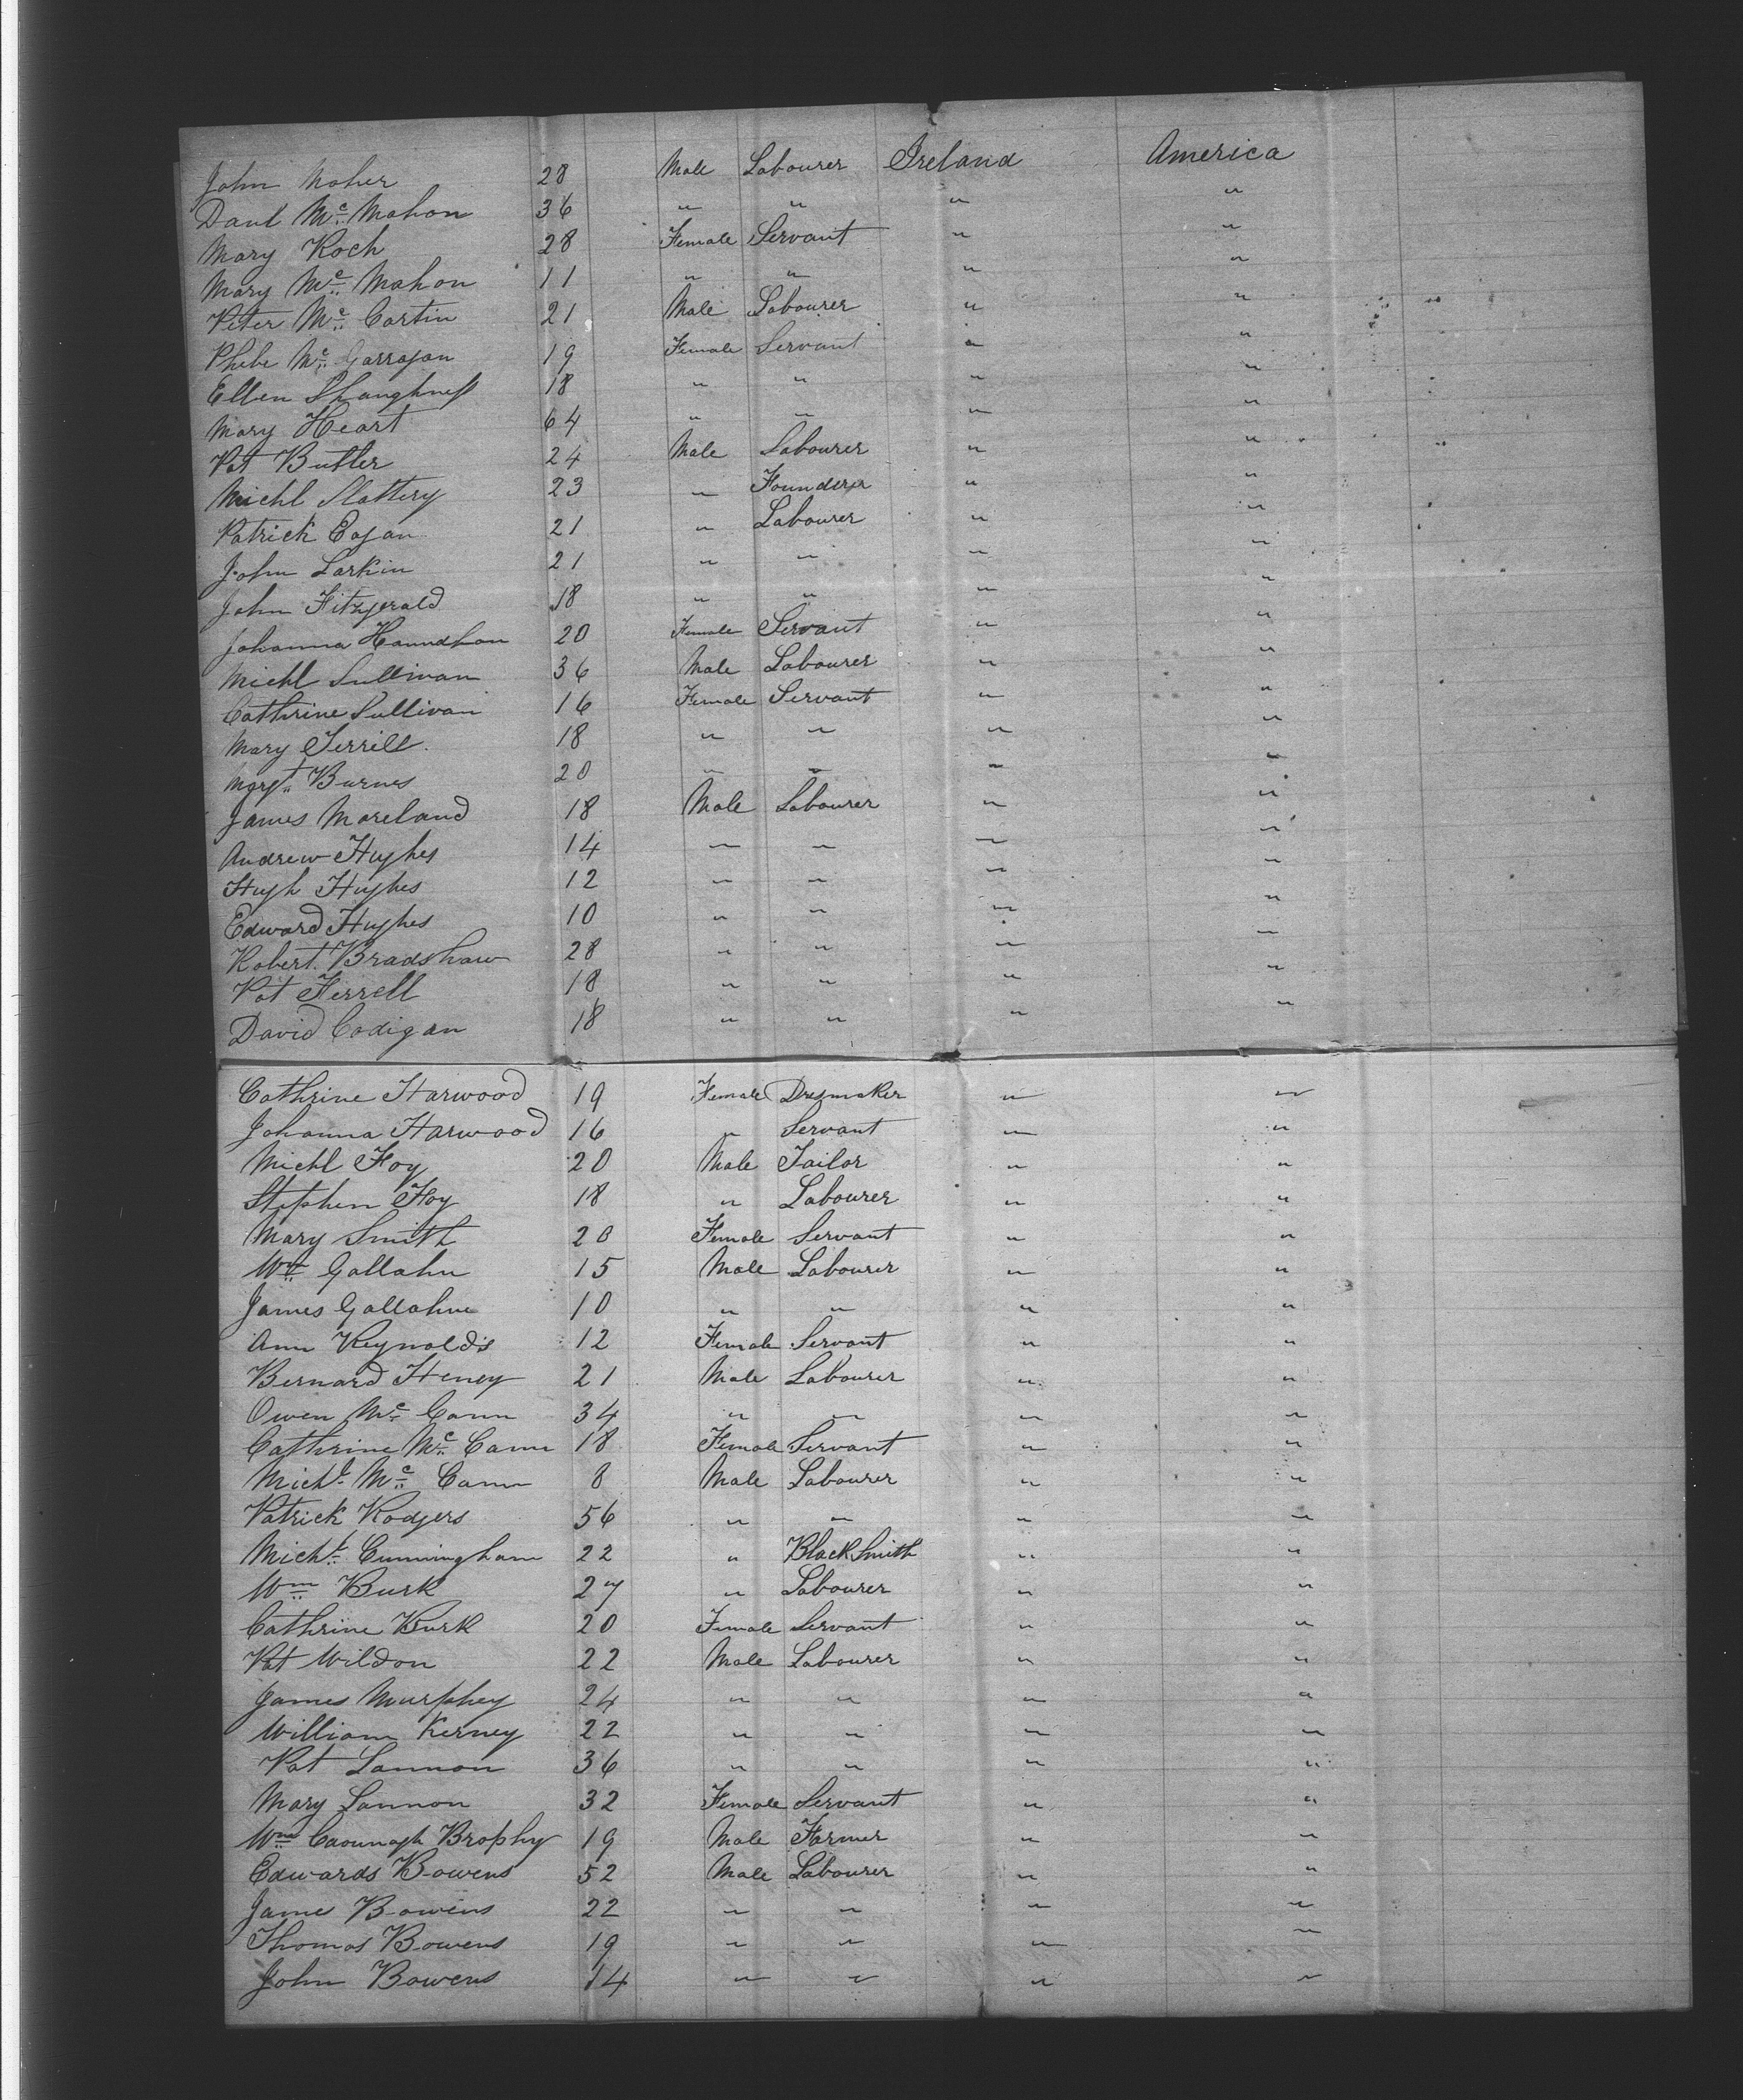 John Maher 28 Male Labourer Ireland America
Danl Mc Mahon 36 " " " "
Mary Roch 28 Female Servant " "
Mary Mc Mahon 11 " " " "
Peter Mc Cartin 21 Male Labourer " "
Phebe Mc Garragan 19 Female Servant " "
Ellen Shaughness 18 " " " "
Mary Heart 64 " " " "
Pat Butler 24 Male Labourer " "
Michl Slattery 23 " Founderer " "
Patrick Eagan 21 " Labourer " "
John Larkin 21 " " " "
John Fitzgerald 18 " " " "
Johanna 20 Female Servant " "
Michl Sullivan 36 Male Labourer " "
Cathrine Sullivan 16 Female Servant " "
Mary Terrill 18 " " " "
Margt Burnes 20 " " " "
James Moreland 18 Male Labourer " "
Andrew Hughes 14 " " " "
Hugh Hughes 12 " " " "
Edward Hughes 10 " " " "
Robert Bradshaw 28 " " " "
Pat Ferrell 18 " " " "
David Codigan 18 " " " "
Cathrine Harwood 19 Female Dresmaker " "
Johanna Harwood 16 " Servant " "
Michl Foy 20 Male Tailor " "
Stephen Foy 18 " Labourer " "
Mary Smith 20 Female Servant " "
Wm Gallahu 15 Male Labourer " "
James Gallahue 10 " " " "
Ann Reynolds 12 Female Servant " "
Bernard Heney 21 Male Labourer " "
Owen Mc Cann 34 " " " "
Cathrine Mc Cann 18 Female Servant " "
Michl Mc Cann 8 Male Labourer " "
Patrick Rodgers 56 " " " "
Michl Cunningham 22 " Black Smith " "
Wm Burk 27 " Labourer " "
Cathrine Burk 20 Female Servant " "
Pat Wildon 22 Male Labourer " "
James Murphey 24 " " " "
William Kerney 22 " " " "
Pat Lannon 36 " " " "
Mary Lannon 32 Female Servant " "
Wm Caounagh Brophy 19 Male Farmer " "
Edwards Bowens 52 Male Labourer " "
James Bowens 22 " " " "
Thomas Bowens 19 " " " "
John Bowens 14 " " " "